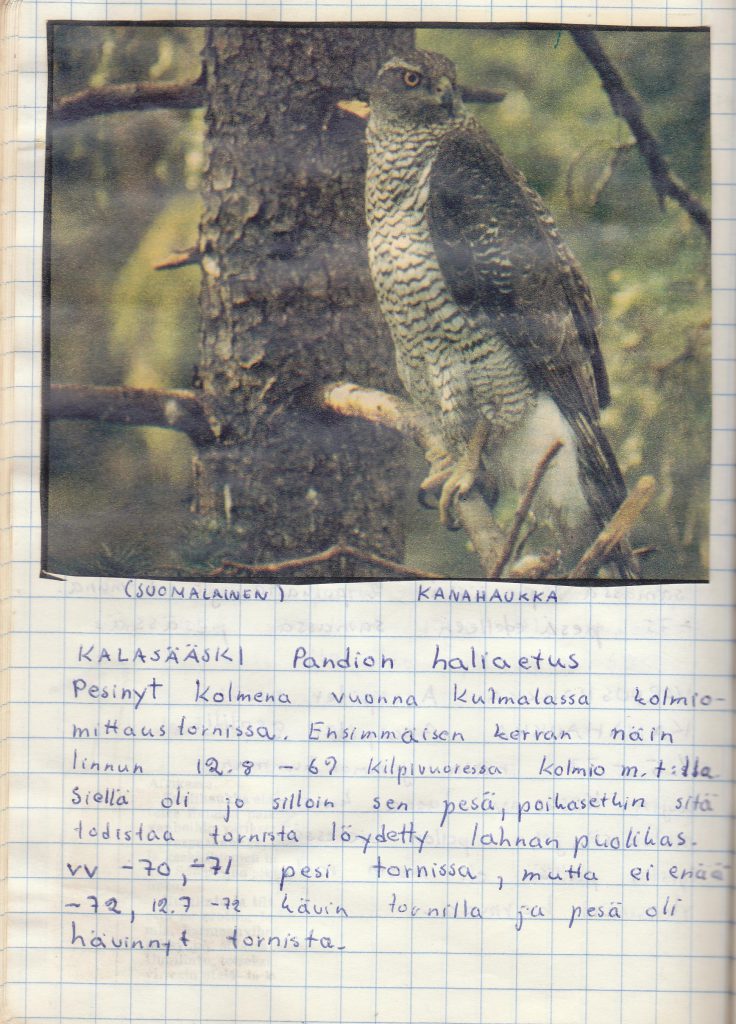 (SUOMALAINEN) KANAHAUKKA
KALASÄÄSKI Pandion haliaetus
Pesinyt kolmena vuonna Kulmalassa kolmio-
mittaustornissa. Ensimmäisen kerran näin
linnun 12.8 -69 Kilpivuoressa kolmio m.t:lla
Siellä oli jo silloin sen pesä, poikasethin sitä
todistaa tornista löydetty lahnan puolikas.
vv -70, -71 pesi tornissa, mutta ei enää
-72, 12.7 -72 kävin tornilla ja pesä oli
hävinnyt tornista.